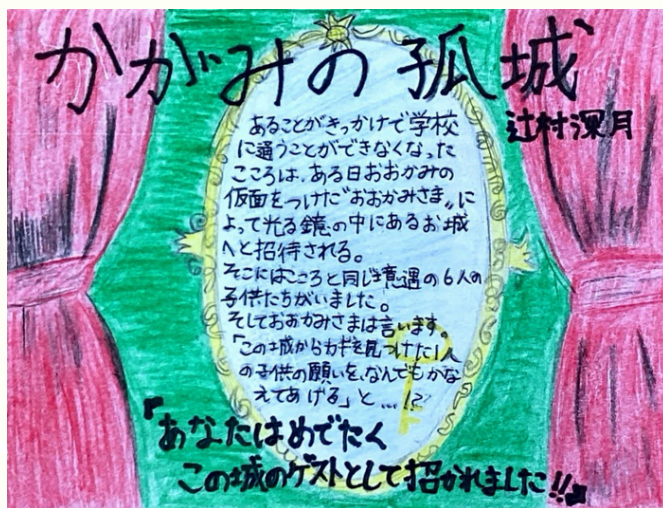 かがみの孤城
辻村深月
あることがきっかけで学校
に通うことができなくなった
こころは、ある日おおかみの
仮面をつけた〝おおかみさま〟に
よって光る鏡の中にあるお城
へと招待される。
そこにはこころと同じ境遇の6人の
子供たちがいました。
そしておおかみさまは言います。
「この城からカギを見つけた1人
の子供の願いを、なんでもかな
えてあげる」と…!?
『あなたはめでたく
この城のゲストとして招かれました!!』